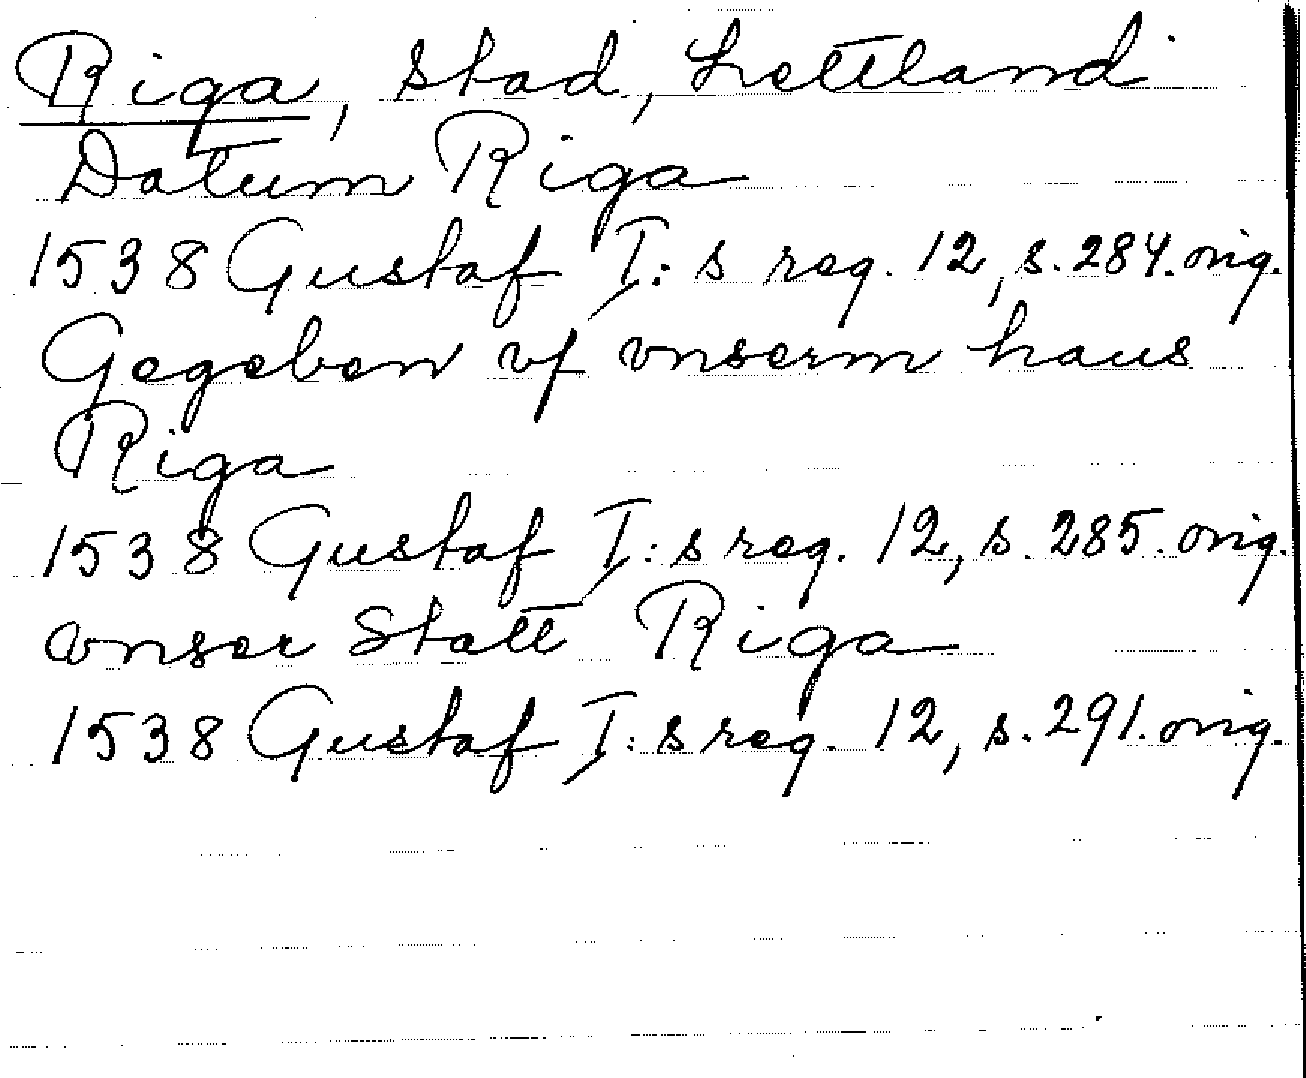 Riga, stad, Lettland
Datum Riga
1538 Gustaf I: s reg. 12, s. 284. orig.
Gegeben vf vnserm haus
Riga
1538 Gustaf I: s reg. 12, s. 285. orig.
vnser Statt Riga
1538 Gustaf I: s reg. 12, s. 291. orig.